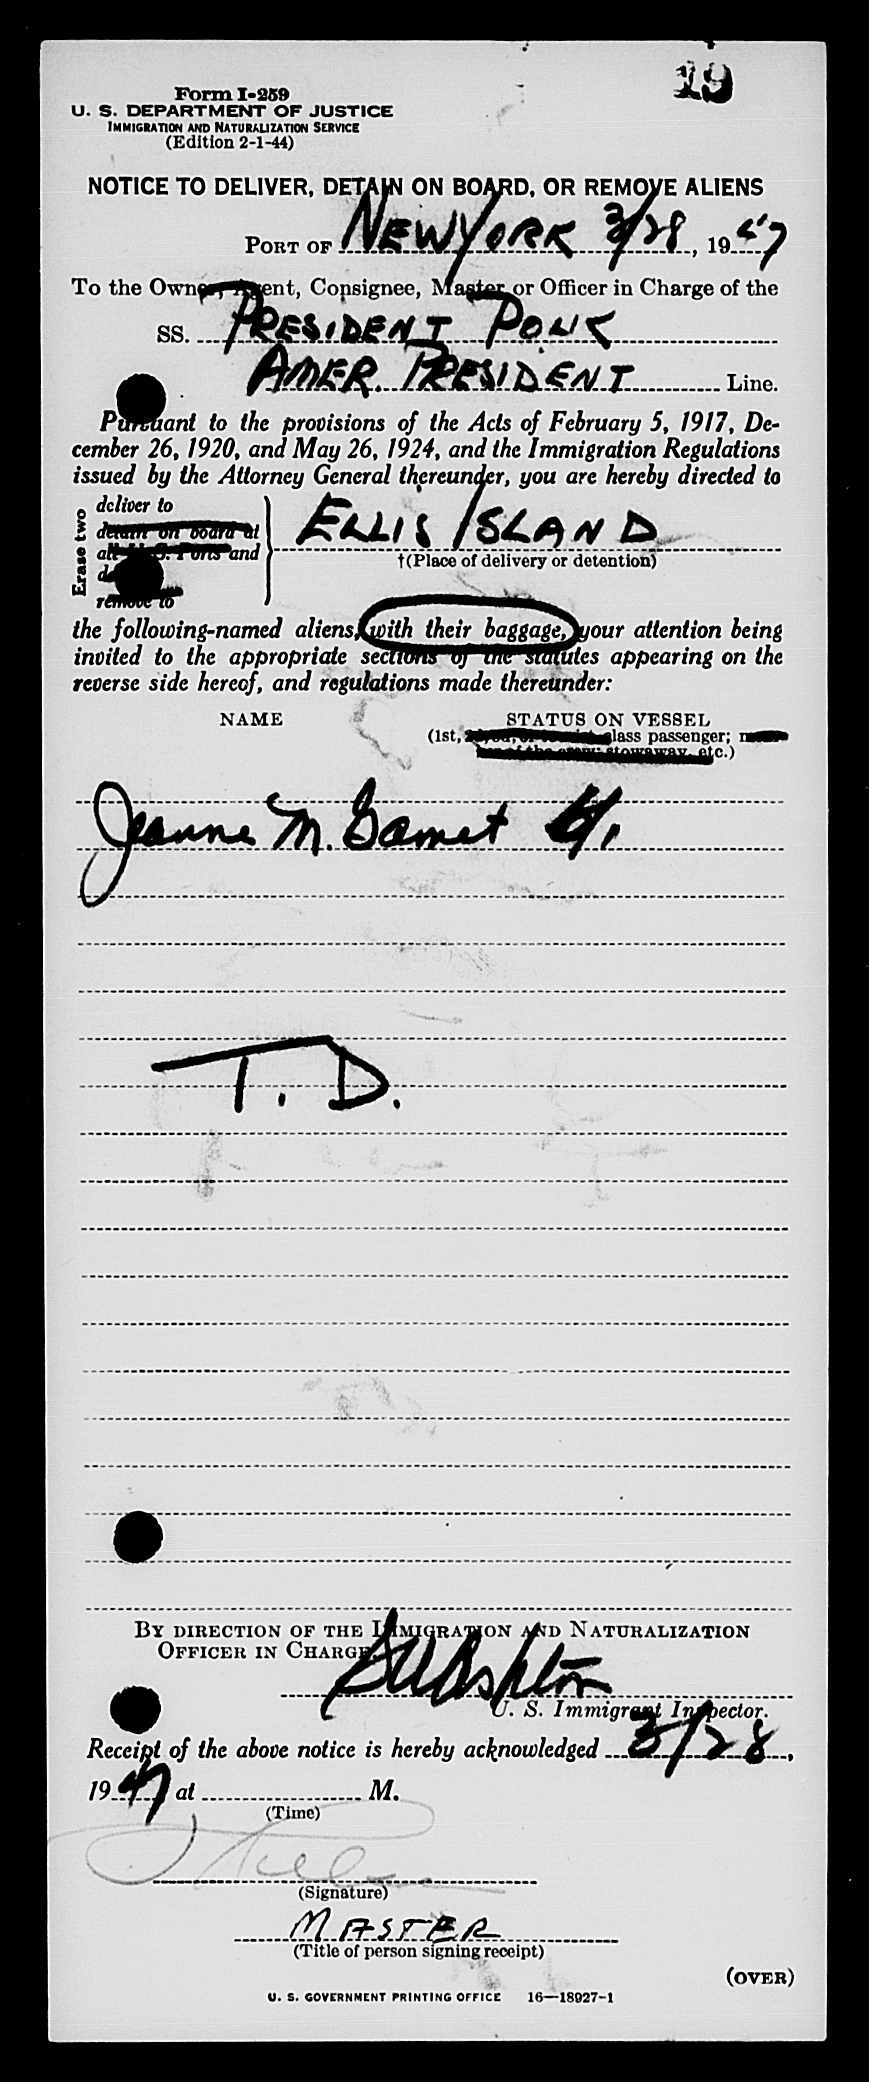 19
Form I-259
U. S. DEPARTMENT OF JUSTICE
IMMIGRATION AND NATURALIZATION SERVICE
(Edition 2-1-44)
NOTICE TO DELIVER, DETAIN ON BOARD, OR REMOVE ALIENS
PORT OF NEW YORK 3/28, 1947
To the Owner, Agent, Consignee, Master or Officer in Charge of the
SS. PRESIDENT POLK
AMER. PRESIDENT Line.
Pursuant to the provisions of the Acts of February 5, 1917, De-
cember 26, 1920, and May 26, 1924, and the Immigration Regulations
issued by the Attorney General thereunder, you are hereby directed to
Erase two
deliver to
detain on board at
all U. S. Ports and
remove to
ELLIS ISLAND
†(Place of delivery or detention)
the following-named aliens, with their baggage, your attention being
invited to the appropriate sections of the statutes appearing on the
reverse side hereof, and regulations made thereunder:
NAME
STATUS ON VESSEL
(1st, class passenger;
stowaway, etc.)
Jeanne M. Gamet
T. D.
BY DIRECTION OF THE IMMIGRATION AND NATURALIZATION
OFFICER IN CHARGE.
Ashton
U. S. Immigrant Inspector.
Receipt of the above notice is hereby acknowledged 3/28,
1947 at M.
(Time)
(Signature)
MASTER
(Title of person signing receipt)
(OVER)
U. S. GOVERNMENT PRINTING OFFICE 16—18927-1